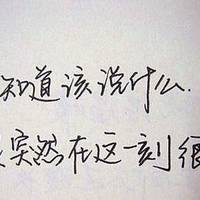 知道该说什么.
突然在这一刻很